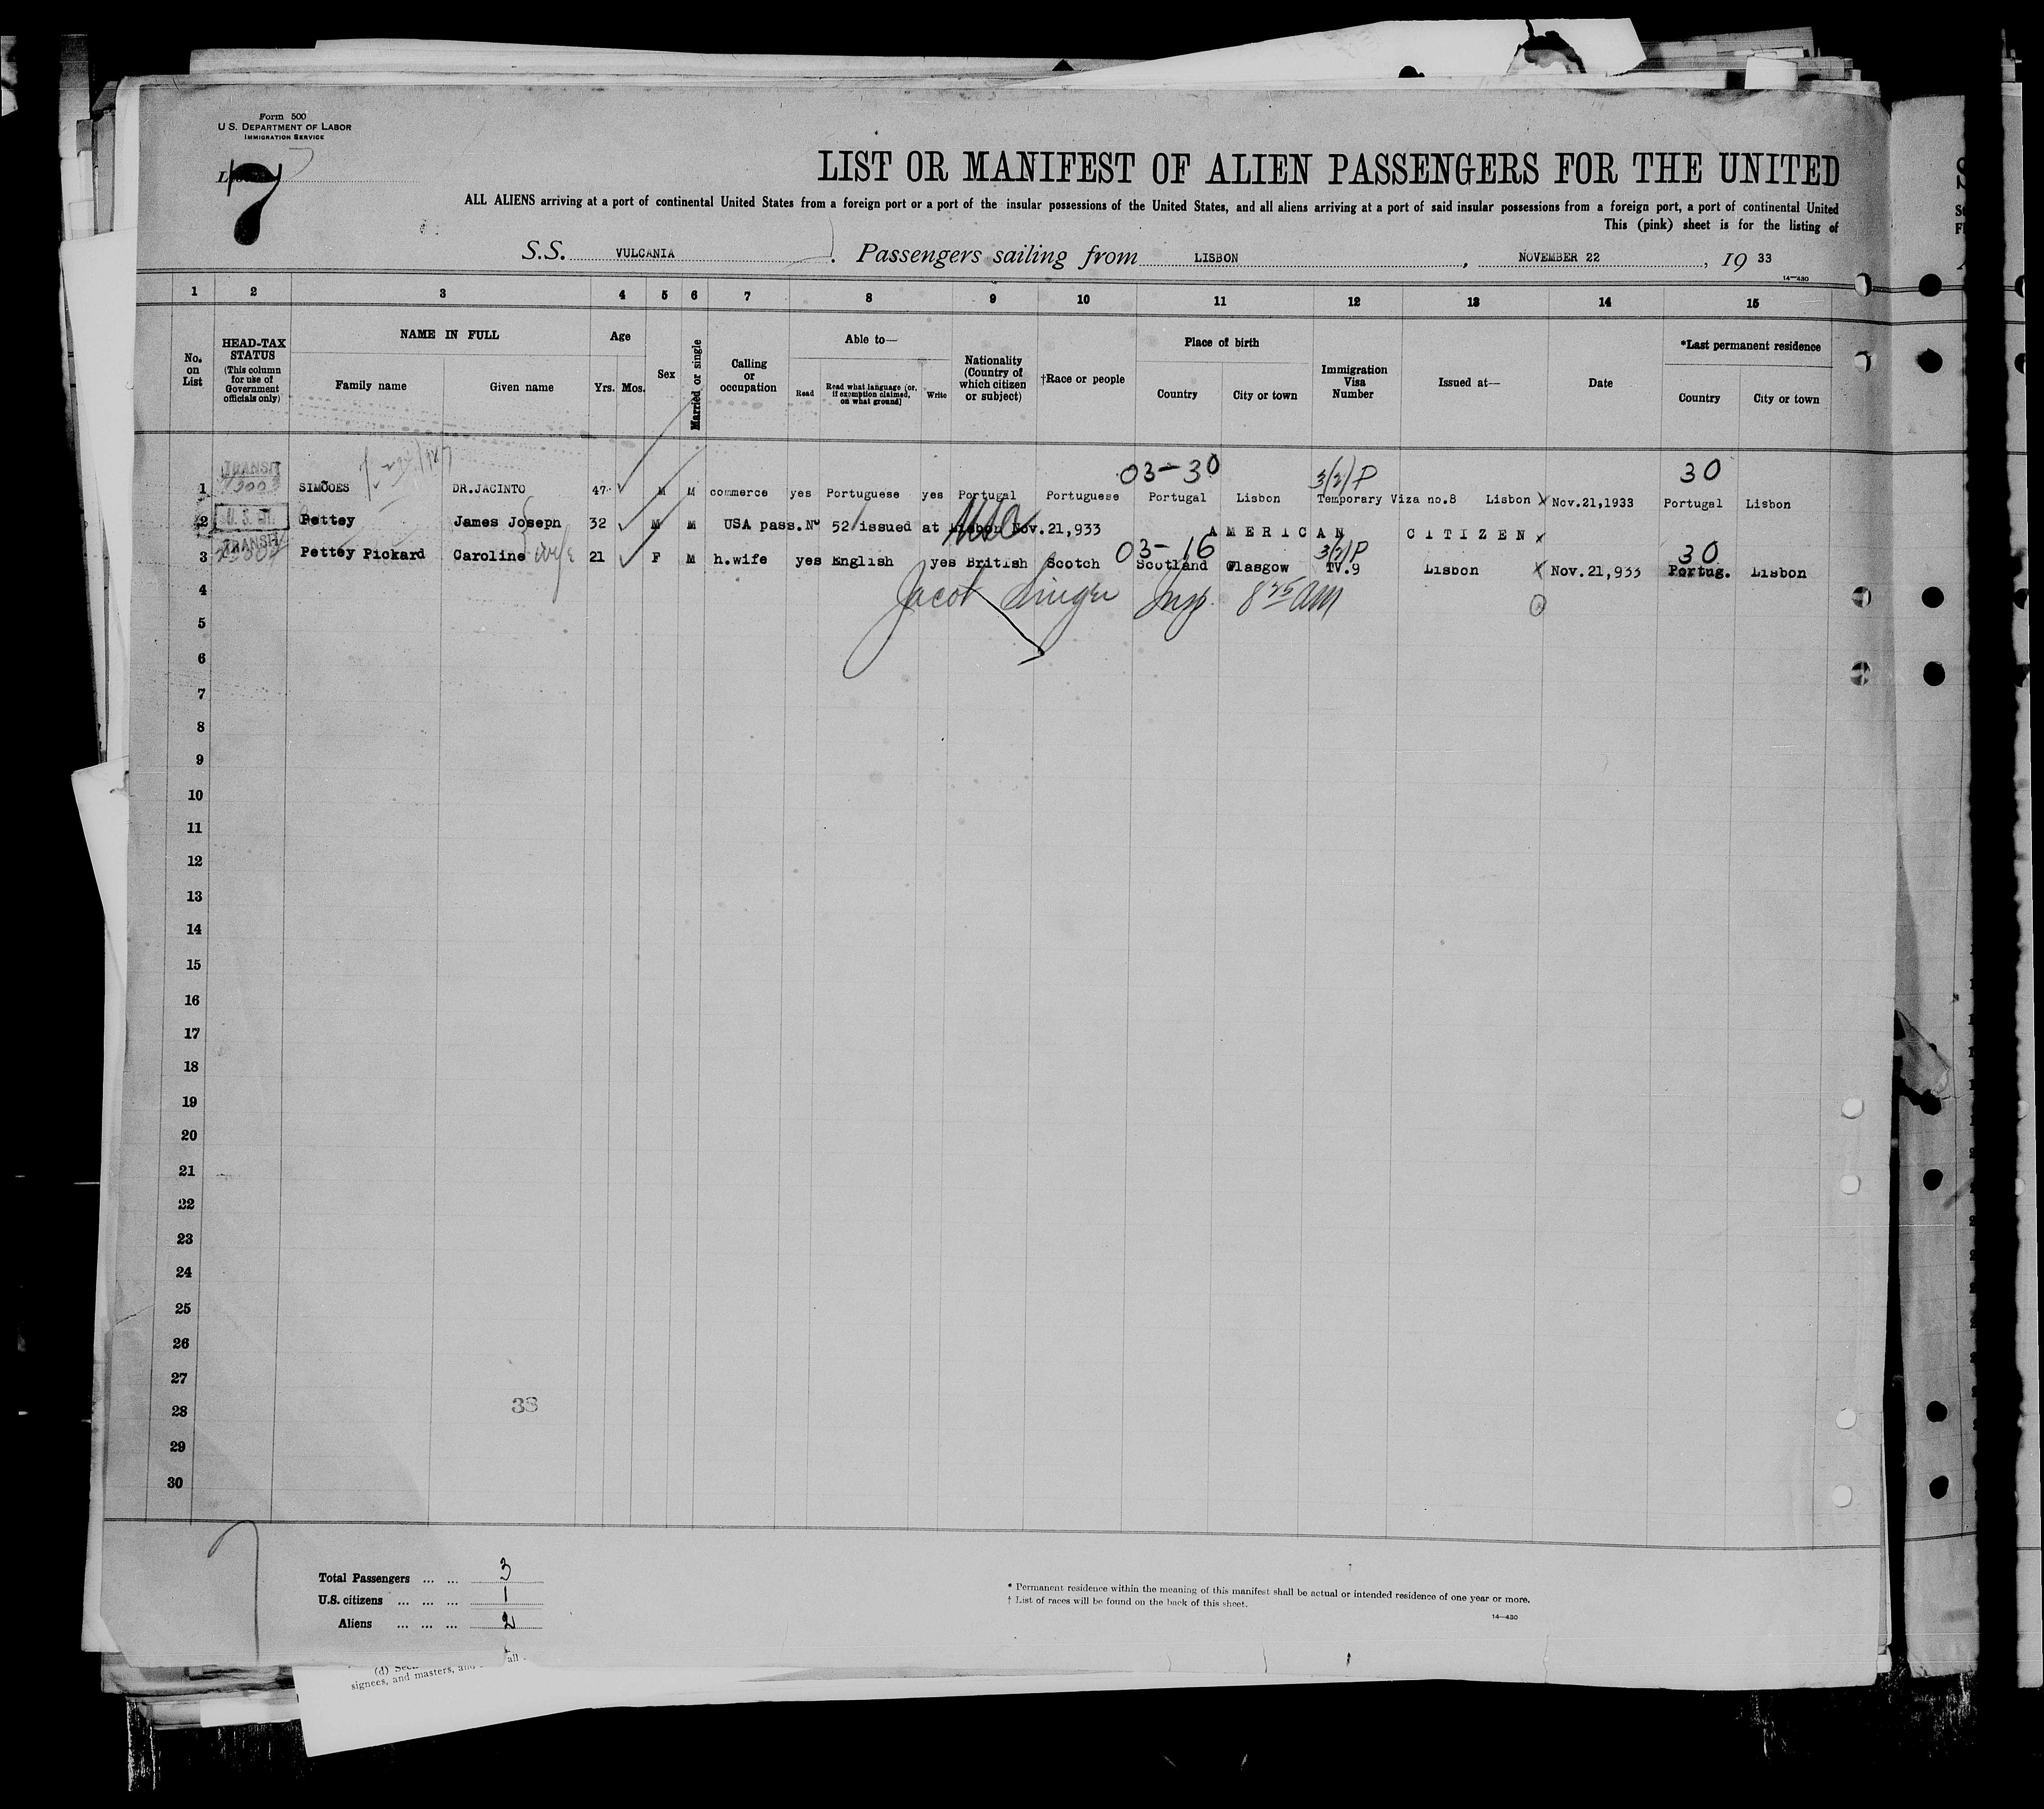 Form 500
U.S. DEPARTMENT OF LABOR
IMMIGRATION SERVICE
7
LIST OR MANIFEST OF ALIEN PASSENGERS FOR THE UNITED
ALL ALIENS arriving at a port of continental United States from a foreign port or a port of the insular possessions of the United States, and all aliens arriving at a port of said insular possessions from a foreign port, a port of continental United
This (pink) sheet is for the listing of
S.S. VULCANIA. Passengers sailing from LISBON, NOVEMBER 22, 19 33
14—430
1 2 3 4 5 6 7 8 9 10 11 12 13 14 15
No. on List
HEAD-TAX STATUS (This column for use of Government officials only)
NAME IN FULL
Family name Given name
Age
Yrs. Mos.
Sex
Married or single
Calling or occupation
Able to—
Read Read what language (or, if exemption claimed, on what ground) Write
Nationality (Country of which citizen or subject)
†Race or people
Place of birth
Country City or town
Immigration Visa Number
Issued at—
Date
*Last permanent residence
Country City or town
03-30 3/2/P 30
1 TRANSIT SIMÕOES DR.JACINTO 47 M M commerce yes Portuguese yes Portugal Portuguese Portugal Lisbon Temporary Viza no.8 Lisbon X Nov.21,1933 Portugal Lisbon
2 Pettey James Joseph 32 M M USA pass.Nº 52 issued at Lisbon Nov.21,933 AMERICAN CITIZEN x
03-16 3/2/P 30
3 TRANSIT Pettey Pickard Caroline wife 21 F M h.wife yes English yes British Scotch Scotland Glasgow TV.9 Lisbon X Nov.21,933 Portug. Lisbon
4 Jacob Singer Insp. 8 25 AM
5
6
7
8
9
10
11
12
13
14
15
16
17
18
19
20
21
22
23
24
25
26
27
28
29
30
38
Total Passengers ... ... 3
U.S. citizens ... ... ... 1
Aliens ... ... ... 2
* Permanent residence within the meaning of this manifest shall be actual or intended residence of one year or more.
† List of races will be found on the back of this sheet.
14—430
(d) all
signees, and masters, and